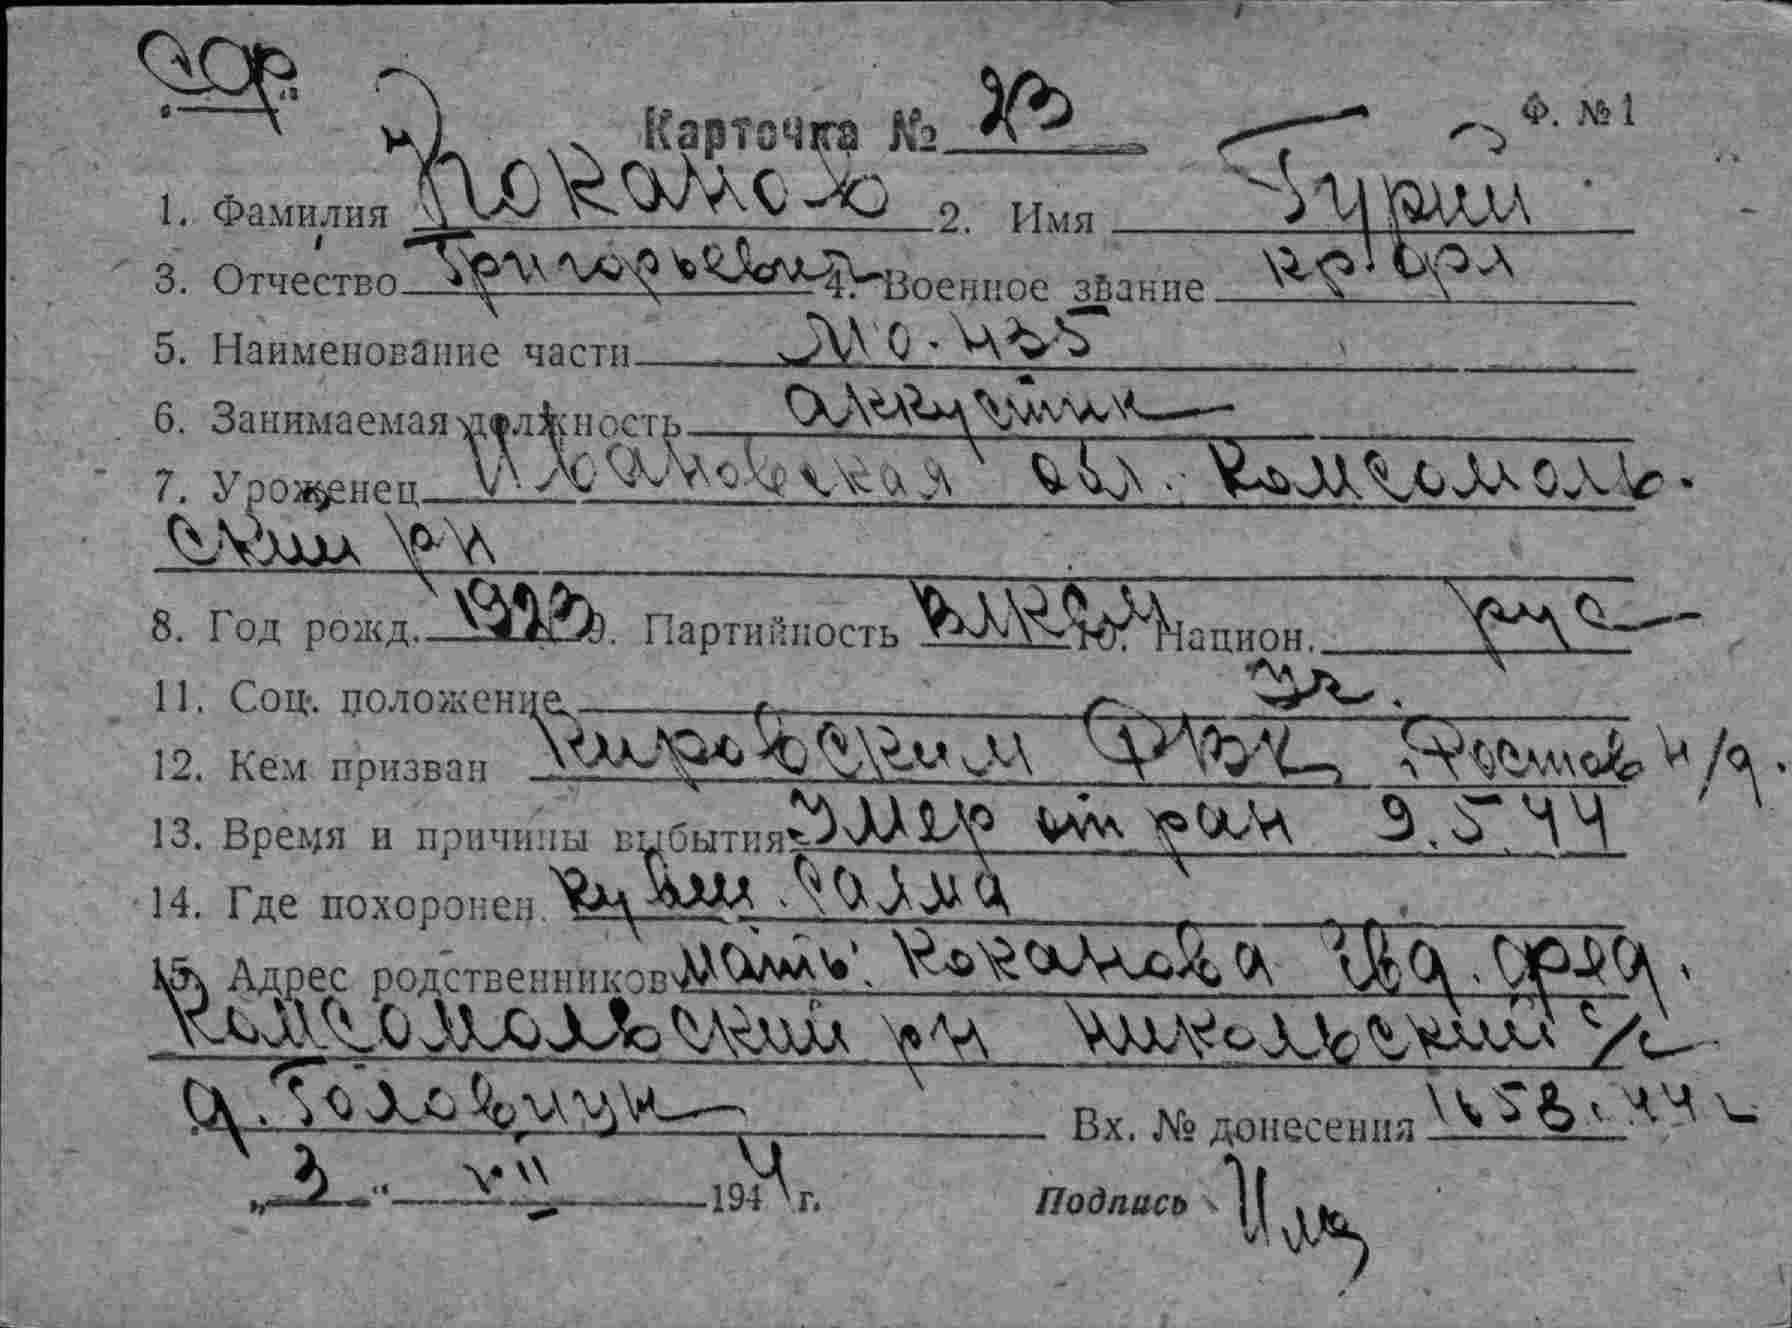 Карточка № 23 Ф. № 1
1. Фамилия Коканов 2. Имя Гурий
3. Отчество Григорьевич 4. Военное звание кр фл
5. Наименование части МО-435
6. Занимаемая должность акустик
7. Уроженец Ивановская обл. Комсомоль-
ский р н
8. Год рожд. 1923 9. Партийность ВЛКСМ 10. Национ. рус
11. Соц. положение уч.
12. Кем призван Кировским РВК Ростов н/д.
13. Время и причины выбытия Умер от ран 9.5 44
14. Где похоронен.
15. Адрес родственников мать. Коканова
Комсомольский р н Никольский с/с
д. Головчун
Вх. № донесения 1658. 44 г
„3" VII 1944 г. Подпись